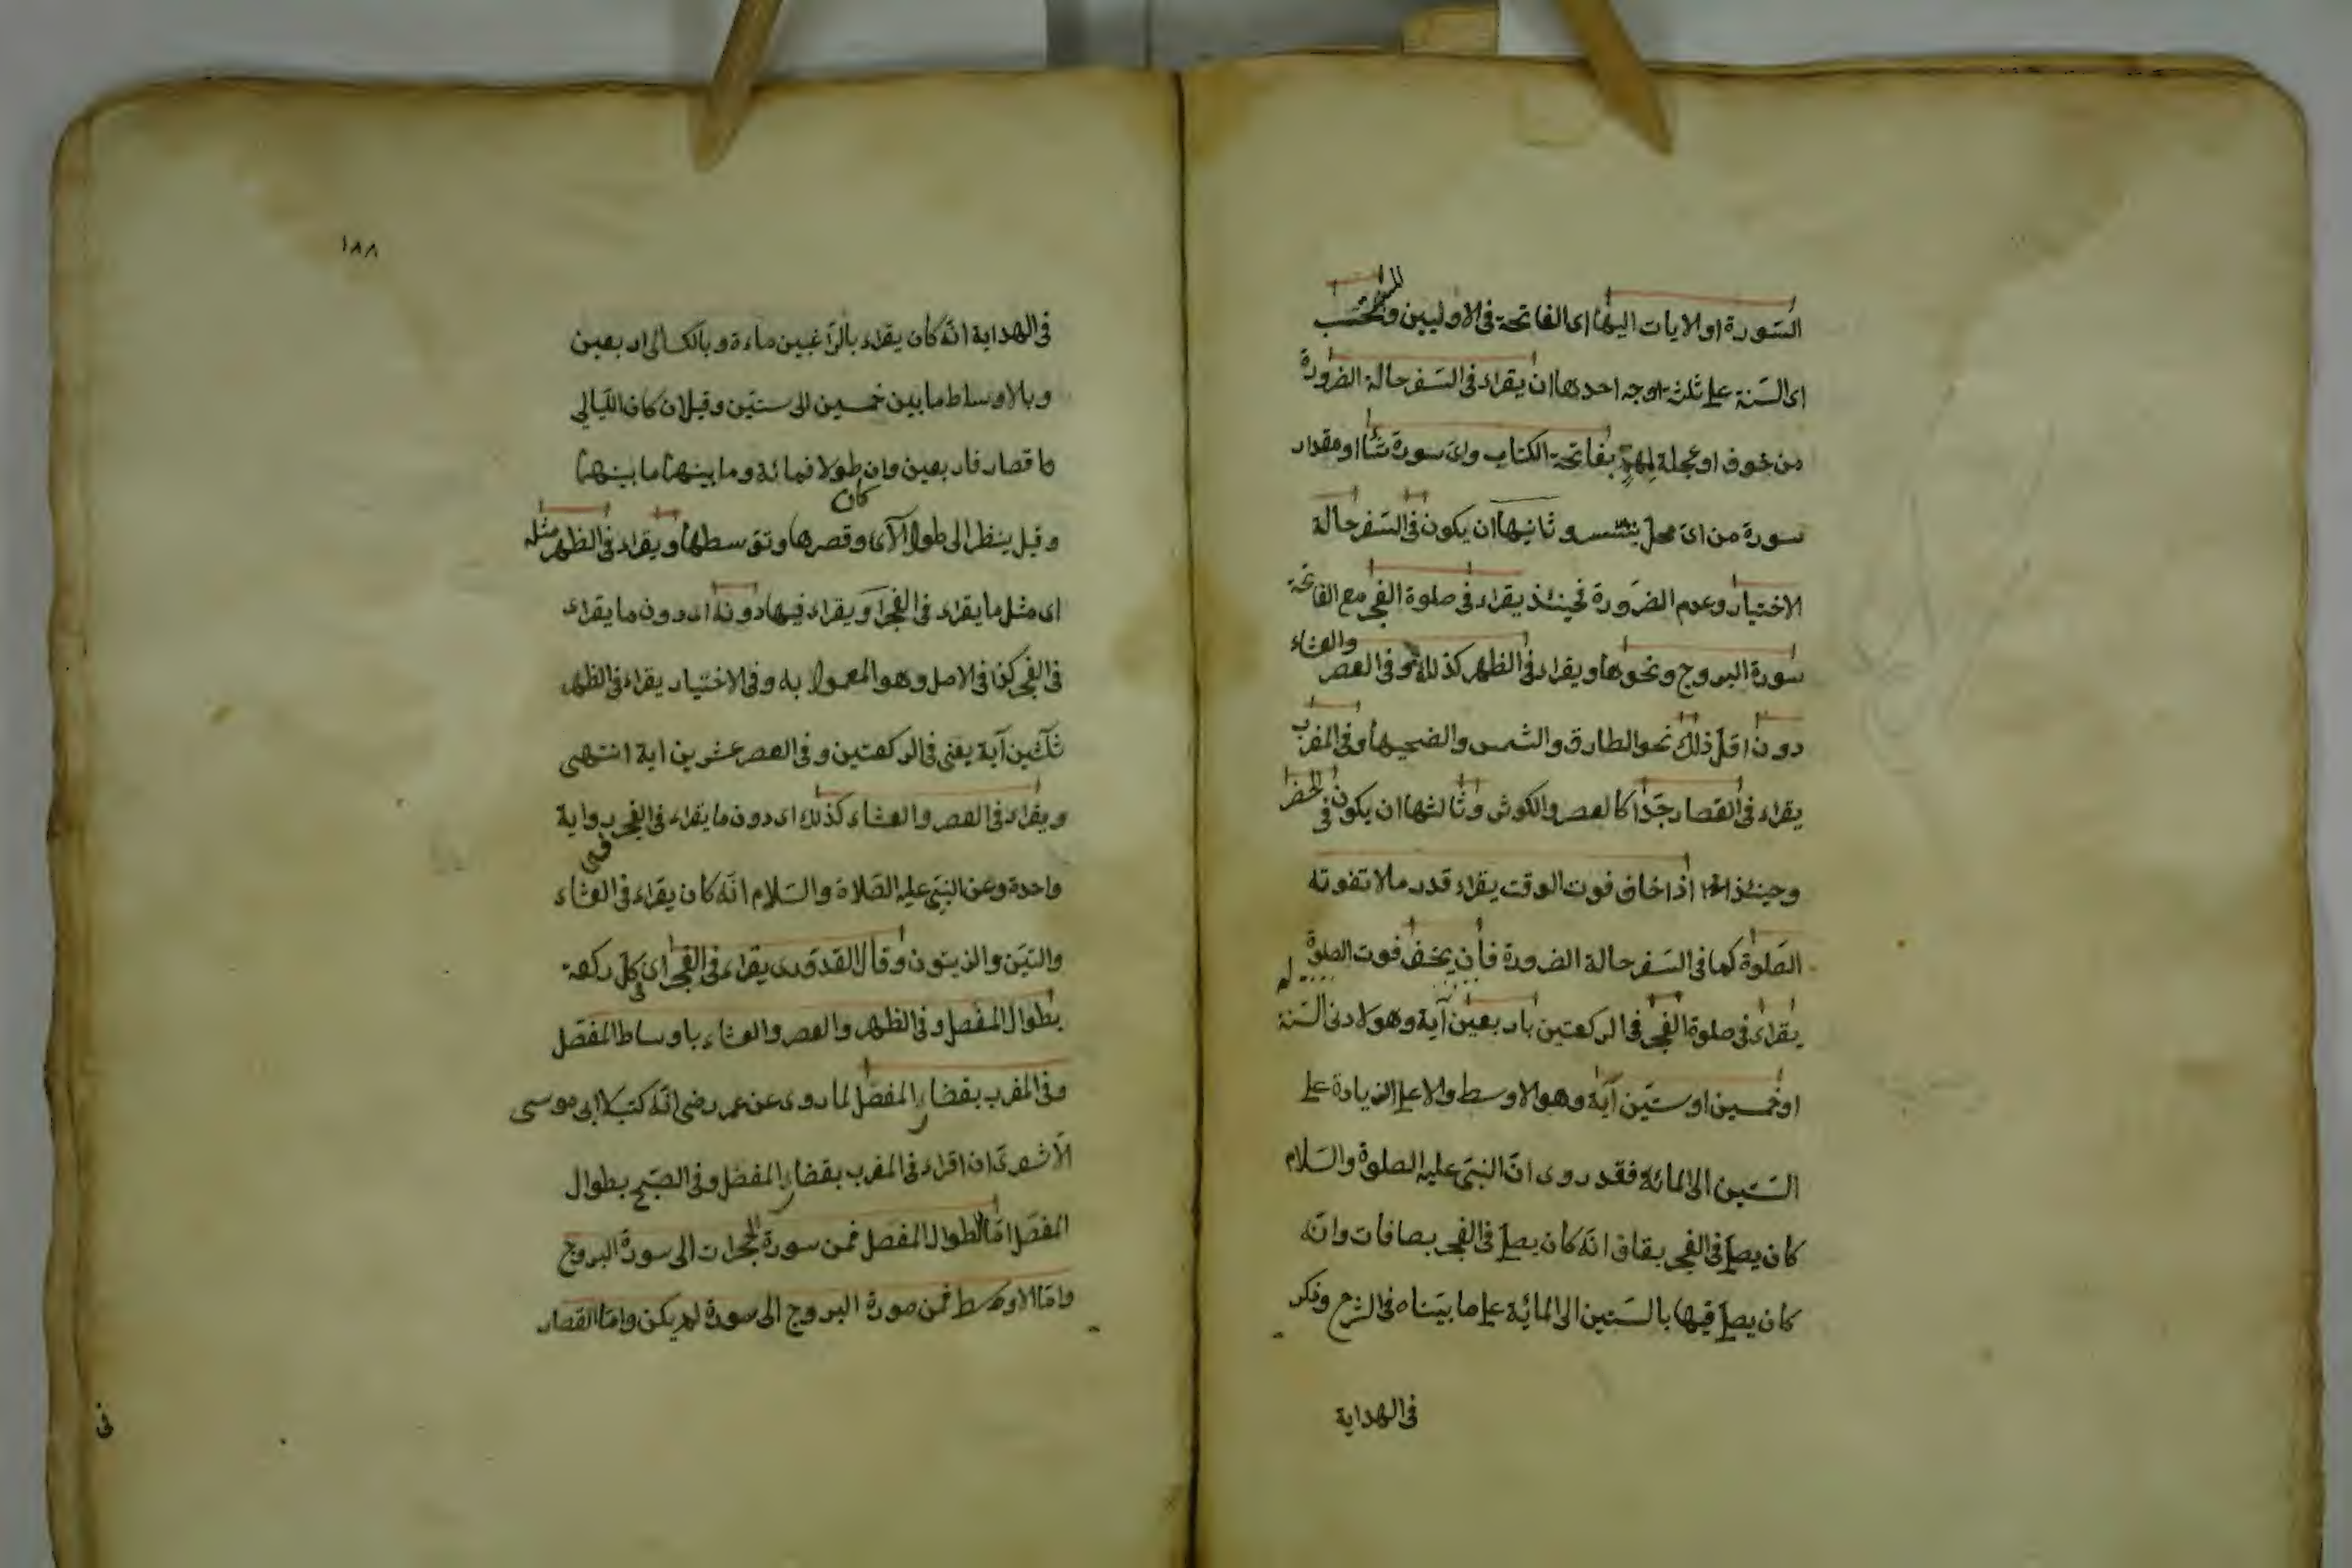 السورة او لايات اليها اى الفاتحة فى الاوليين والمستحب
اى السنة على ثلثة اوجه احدها ان يقراء فى السفر حالة الضرورة
من خوف او عجلة لمهم بفاتحة الكتاب واى سورة شا او مقدار
سورة من اى محل يتيسر وثانيها ان يكون فى السفر حالة
الاختيار وعدم الضرورة فحينئذ يقراء فى صلوة الفجر مع الفاتحة
سورة البروج ونحوها ويقراء فى الظهر كذلك وفى العصر والعشاء
دون اقل ذلك نحو الطارق والشمس والضحيها وفى المغرب
يقراء فى القصار جدا كالعصر والكوثر وثالثها ان يكون فى الحضر
وحينئذ اذا خاف فوت الوقت يقراء قدر ما لا تفوته
الصلوة كما فى السفر حالة الضرورة فان يخف فوت الصلوة
يقراء فى صلوة الفجر فى الركعتين باربعين آية وهو لادنى السنة
او خمسين او ستين آية وهو الاوسط والاعلى الزيادة على
الستين الى المائة فقد روى ان النبى عليه الصلوة والسلام
كان يصلى فى الفجر بقاف انه كان يصلى فى الفجر بصافات وانه
كان يصلى فيها بالستين الى المائة على ما بيناه فى الشرح وذكر
فى الهداية
١٨٨
فى الهداية انه كان يقراء بالراغبين ماءة وبالكسالى اربعين
وبالاوساط ما بين خمسين الى ستين وقيل ان كان الليالى
قصار فاربعين وان كان طولا فمائة وما بينهما ما بينهما
وقيل ينظر الى طول الآى وقصرها وتوسطها ويقراء فى الظهر مثله
اى مثل ما يقراء فى الفجر او يقراء فيها دونه اى دون ما يقراء
فى الفجر كذا فى الاصل وهو المعمول به وفى الاختيار يقراء فى الظهر
ثلثين آية يعنى فى الركعتين وفى العصر عشرين اية انتهى
ويقراء فى العصر والعشاء كذلك اى دون ما يقراء فى الفجر برواية
واحدة وعن النبى عليه الصلاة والسلام انه كان يقراء فى العشاء
والتين والزيتون وقال القدورى يقراء فى الفجر اى فى كل ركعة
بطوال المفصل وفى الظهر والعصر والعشاء باوساط المفصل
وفى المغرب بقصار المفصل لما روى عن عمر رضى انه كتب لابى موسى
الاشعرى ان اقراء فى المغرب بقصار المفصل وفى الصبح بطوال
المفصل اما الطوال المفصل فمن سورة الحجرات الى سورة البروج
واما الاوسط فمن صورة البروج الى سورة لم يكن واما القصار
فى